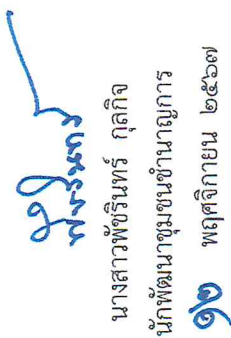 นางสาวพัชรินทร์ กุลกิจ
นักพัฒนาชุมชนชำนาญการ
๑๒ พฤศจิกายน ๒๕๖๗